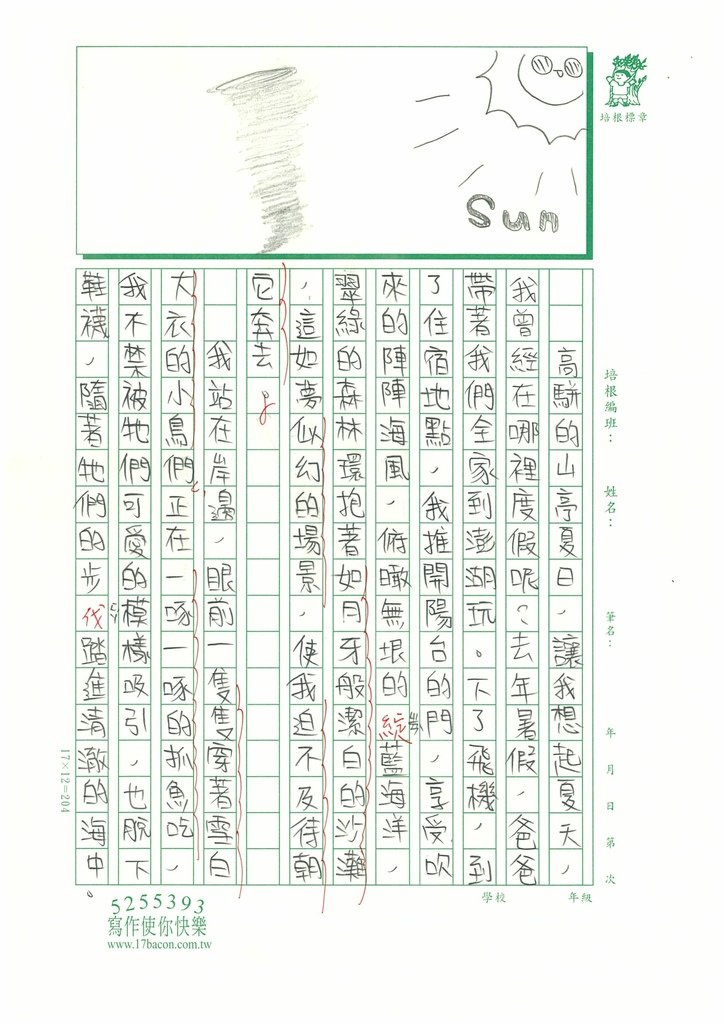 Sun
培根標章
培根編班：
姓名：
筆名：
年 月 日 第 次
學校
年級
高騈的山亭夏日，讓我想起夏天，
我曾經在哪裡度假呢？去年暑假，爸爸
帶著我們全家到澎湖玩。下了飛機，到
了住宿地點，我推開陽台的門，享受吹
來的陣陣海風，俯瞰無垠的綻藍海洋，
翠綠的森林環抱著如月牙般潔白的沙灘
，這如夢似幻的場景，使我迫不及待朝
它奔去。
我站在岸邊，眼前一隻隻穿著雪白
大衣的小鳥們正在一啄一啄的抓魚吃，
我不禁被牠們可愛的模樣吸引，也脫下
鞋襪，隨著牠們的步伐踏進清澈的海中。
17×12=204
5255393
寫作使你快樂
www.17bacon.com.tw